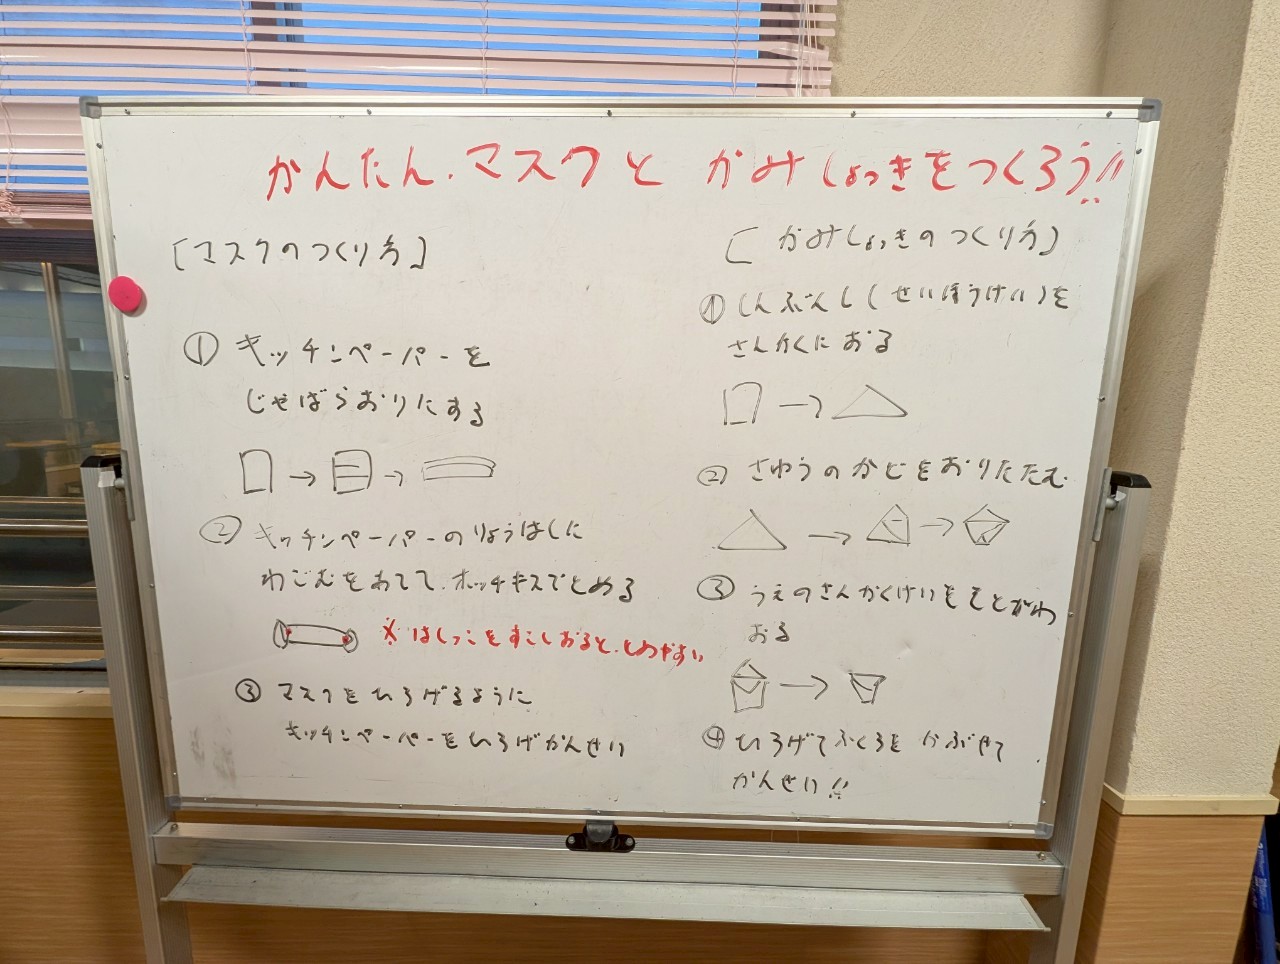 かんたん.マスクと かみしょっきをつくろう!!
[マスクのつくり方]
① キッチンペーパーを
じゃばらおりにする
② キッチンペーパーのりょうはしに
わごむをあてて.ホッチキスでとめる
※はしっこをすこしおると.とめやすい
③ マスクをひろげるように
キッチンペーパーをひろげかんせい
[かみしょっきのつくり方]
① しんぶんし(せいほうけい)を
さんかくにおる
② さゆうのかどをおりたたむ
③ うえのさんかくけいをそとがわ
おる
④ ひろげてふくろをかぶせて
かんせい!!